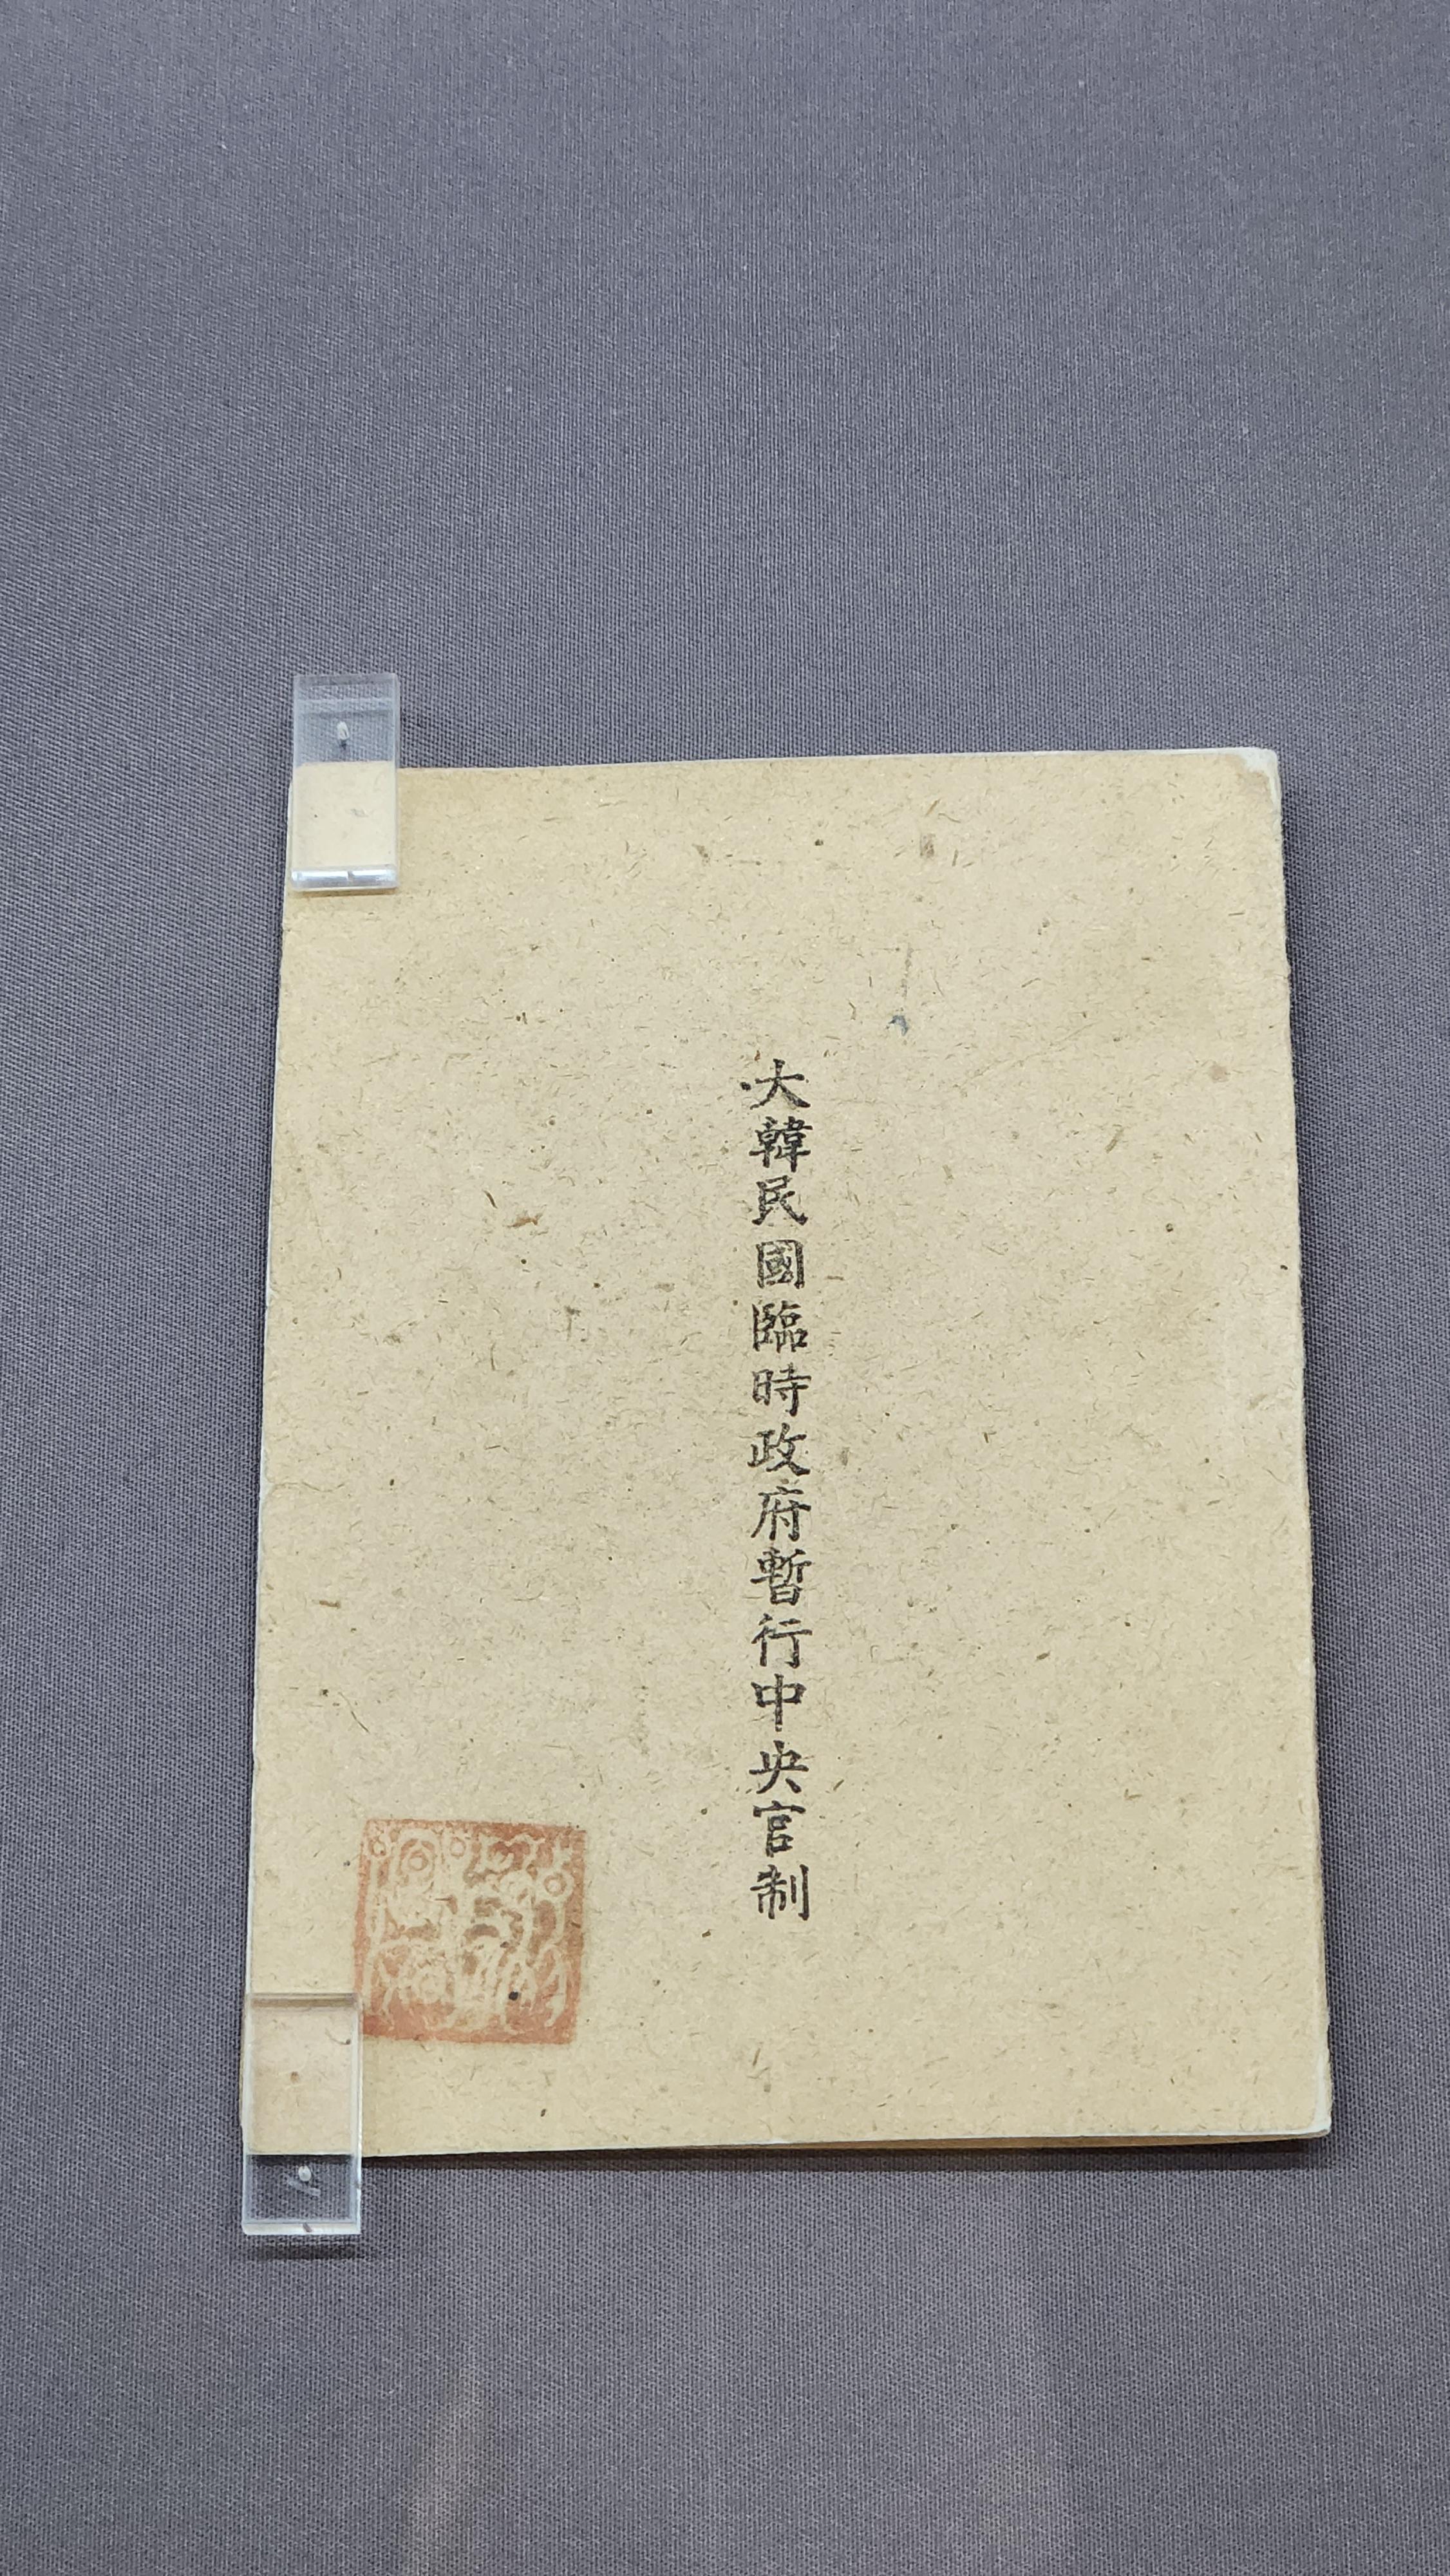 大韓民國臨時政府暫行中央官制